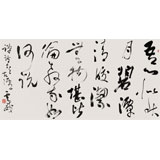 吾心似秋
月碧潭
清皎潔
無物堪比
倫教我如
何說